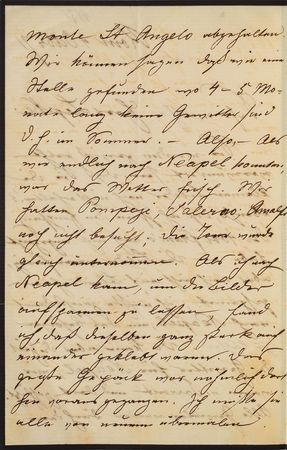 Monte St Angelo abgehalten.
Wir können sagen daß wir eine
Stelle gefunden wo 4-5 Mo-
nate lang keine Gewitter sind
d.h. im Sommer. — Also, — Als
wir endlich nach Neapel konnten,
war das Wetter frisch. Wir
hatten Pompeji, Salerno, Amalfi
noch nicht besucht. Die Tour wurde
gleich unternommen. Als ich nach
Neapel kam, um die Bilder
aufspannen zu lassen, fand
ich, daß dieselben ganz stark an
einander geklebt waren. Das
große Gepäck war nähmlich dort
hin voraus gegangen. Ich mußte sie
alle von neuem übermalen.